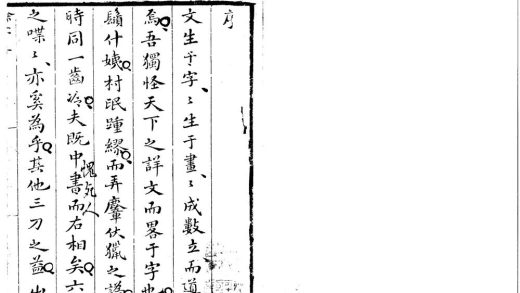 序
文生于字〻生于畫〻成數立而道
焉吾獨怪天下之詳文而畧于字也
鬚什㜷村氓踵繆而弄麞伏獵之誚
時同一齒冷夫既中書而右相矣六
愧死人
之喋〻亦奚為乎其他三刀之益出